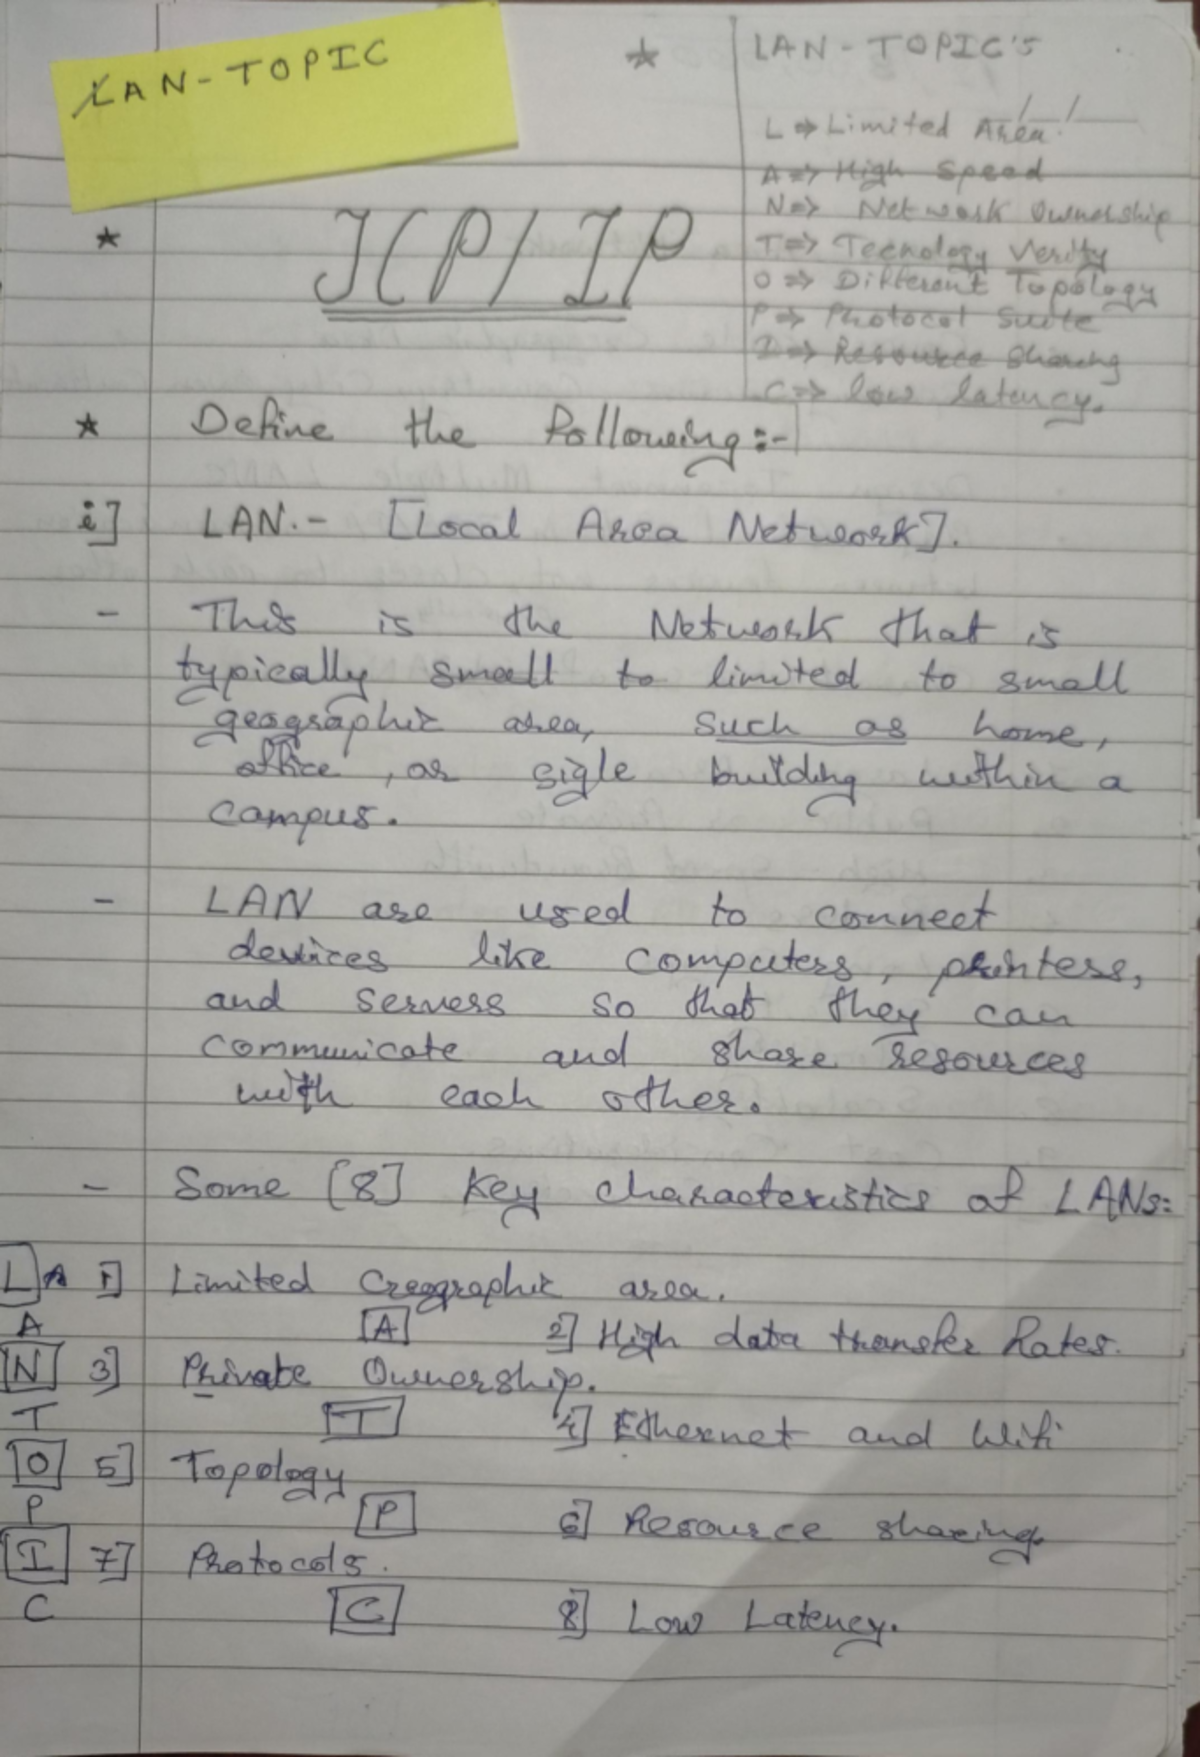 LAN-TOPIC
LAN-TOPIC'S
L => Limited Area!
A => High Speed
N => Network Ownership
T => Tecnology Verity
O => Different Topology
P => Protocol Suite
I => Resource Sharing
C => low latency.
TCP/IP
Define the Following:-
i] LAN.- [Local Area Network].
- This is the Network that is
typically small to limited to small
geographic area, such as home,
office, or sigle building within a
campus.
- LAN are used to connect
devices like computers, printers,
and servers so that they can
communicate and share resources
with each other.
- Some [8] Key characteristics of LANs:
L A 1] Limited Geographic area.
A [A] 2] High data transfer Rates.
N 3] Private Ownership.
T [T] 4] Ethernet and Wifi
O 5] Topology
P [P] 6] Resource sharing
I 7] Protocols.
C [C] 8] Low Latency.